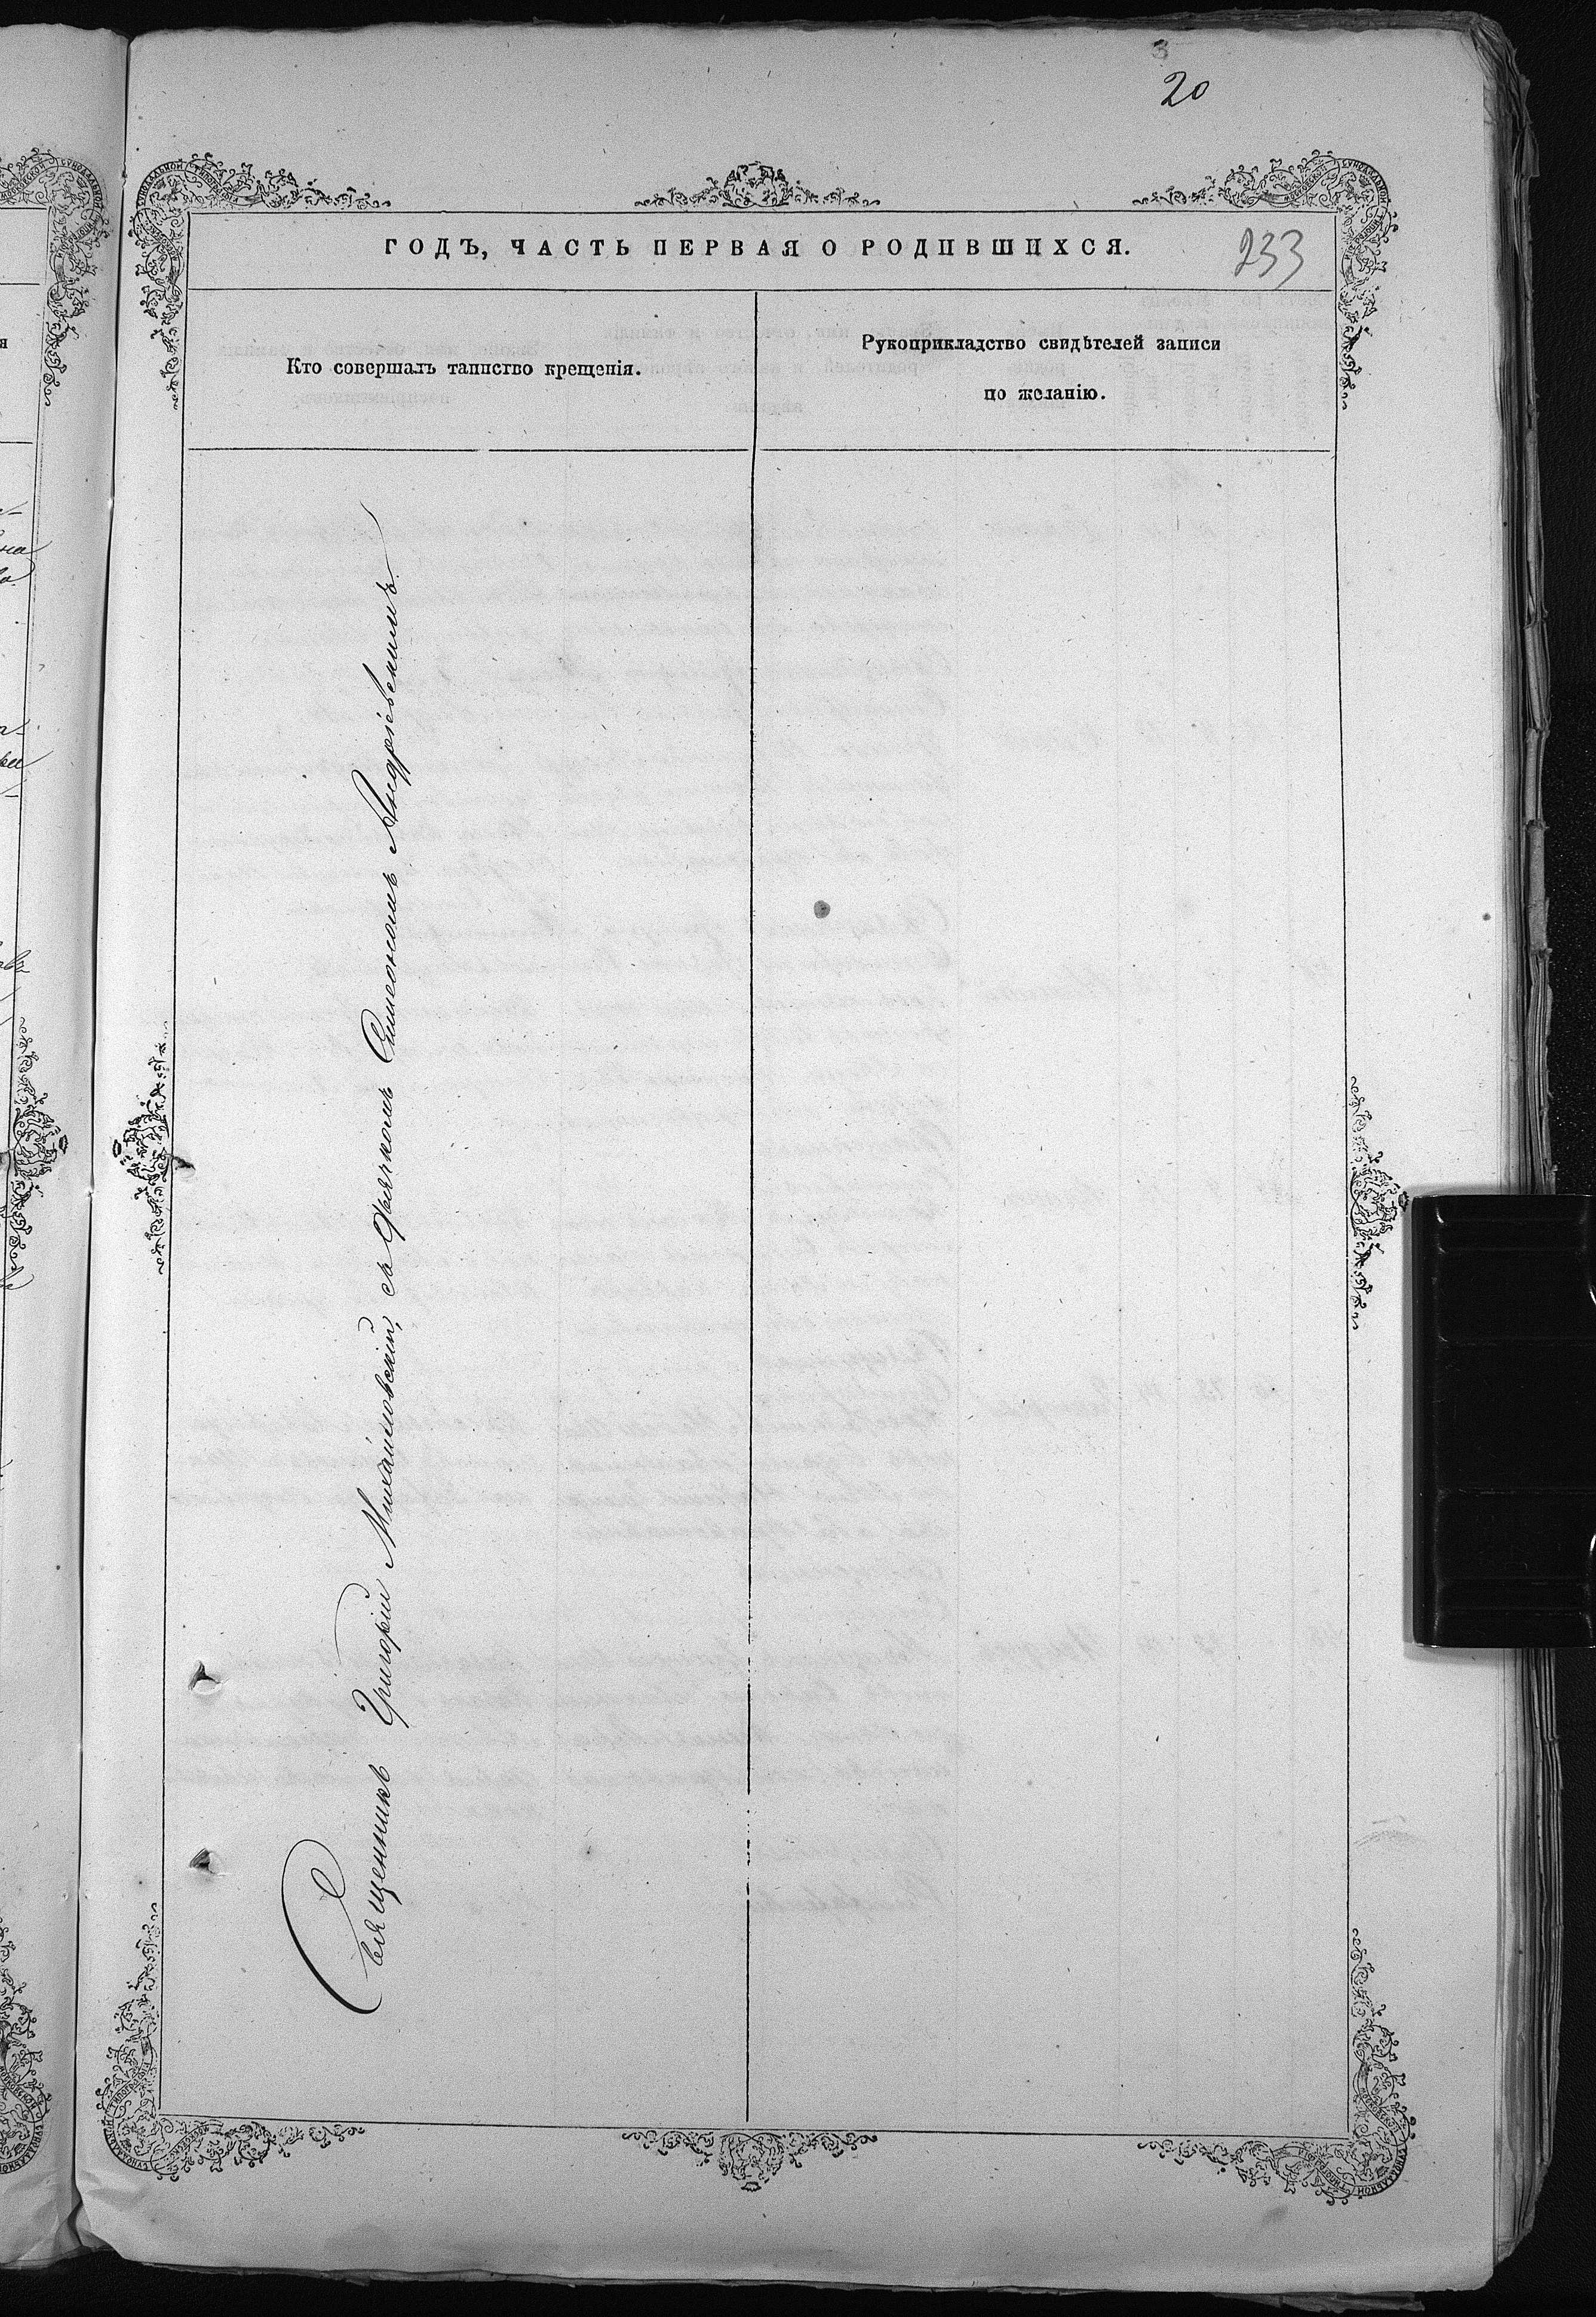 20
ГОДЪ, ЧАСТЬ ПЕРВАЯ О РОДИВШИХСЯ.
233
Кто совершалъ таинство крещенія.
Рукоприкладство свидѣтелей записи
по желанію.
Священникъ Григорій Михайловскій, съ дьячкомъ Симеономъ Андріевскимъ.